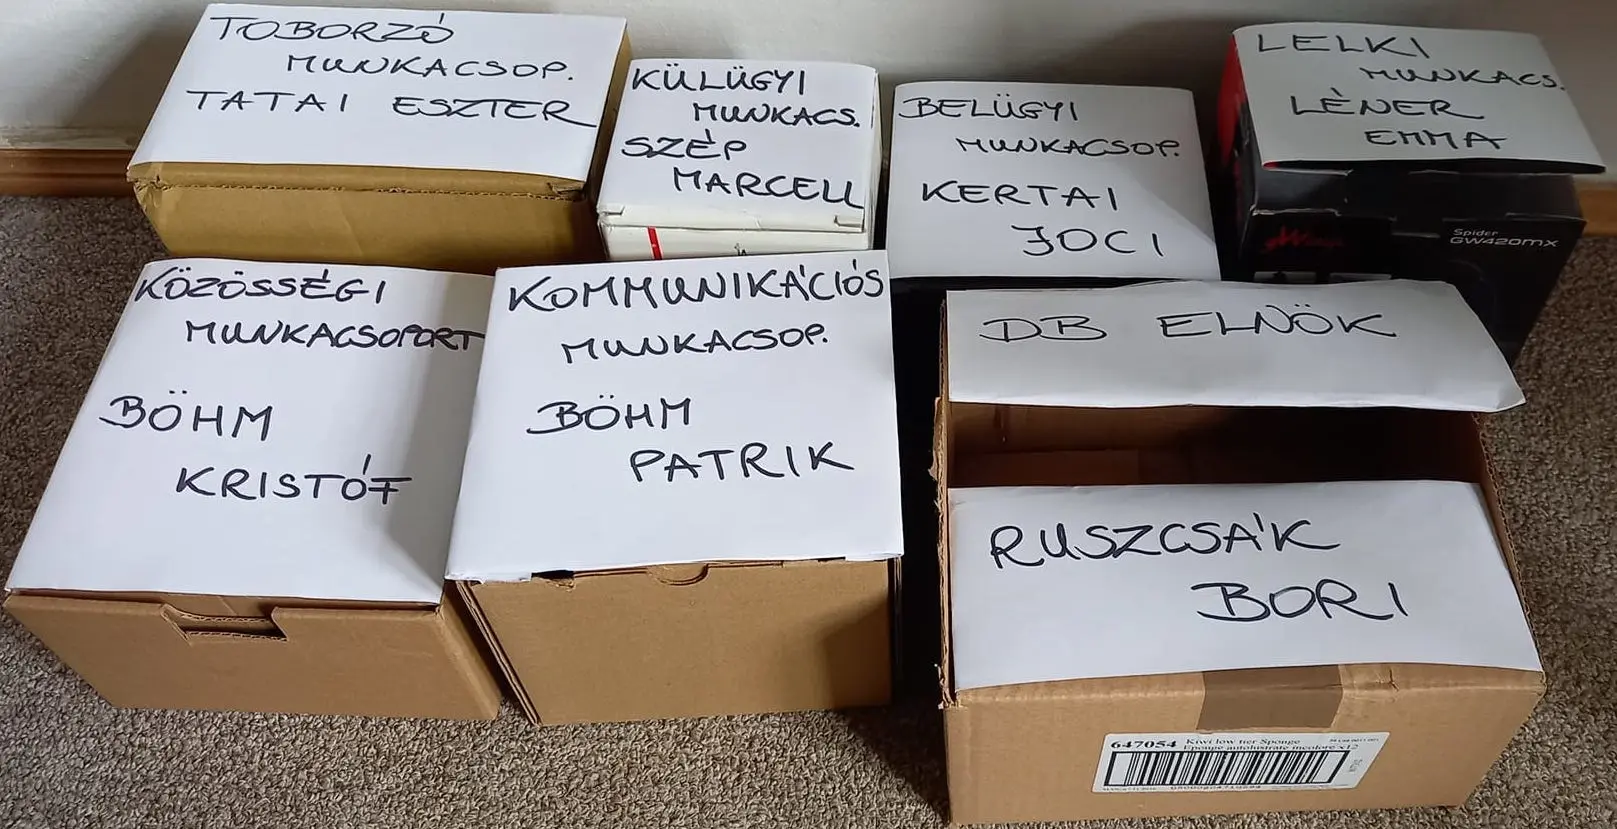 TOBORZÓ
MUNKACSOP.
TATAI ESZTER
KÜLÜGYI
MUNKACS.
SZÉP
MARCELL
BELÜGYI
MUNKACSOP.
KERTAI
JOCI
LELKI
MUNKACS.
LÉNER
EMMA
Spider
GW420MX
KÖZÖSSÉGI
MUNKACSOPORT
BÖHM
KRISTÓF
KOMMUNIKÁCIÓS
MUNKACSOP.
BÖHM
PATRIK
DB ELNÖK
RUSZCSÁK
BORI
647054 Kiwi low tier Sponge
Eponge autolustrate incolore x12